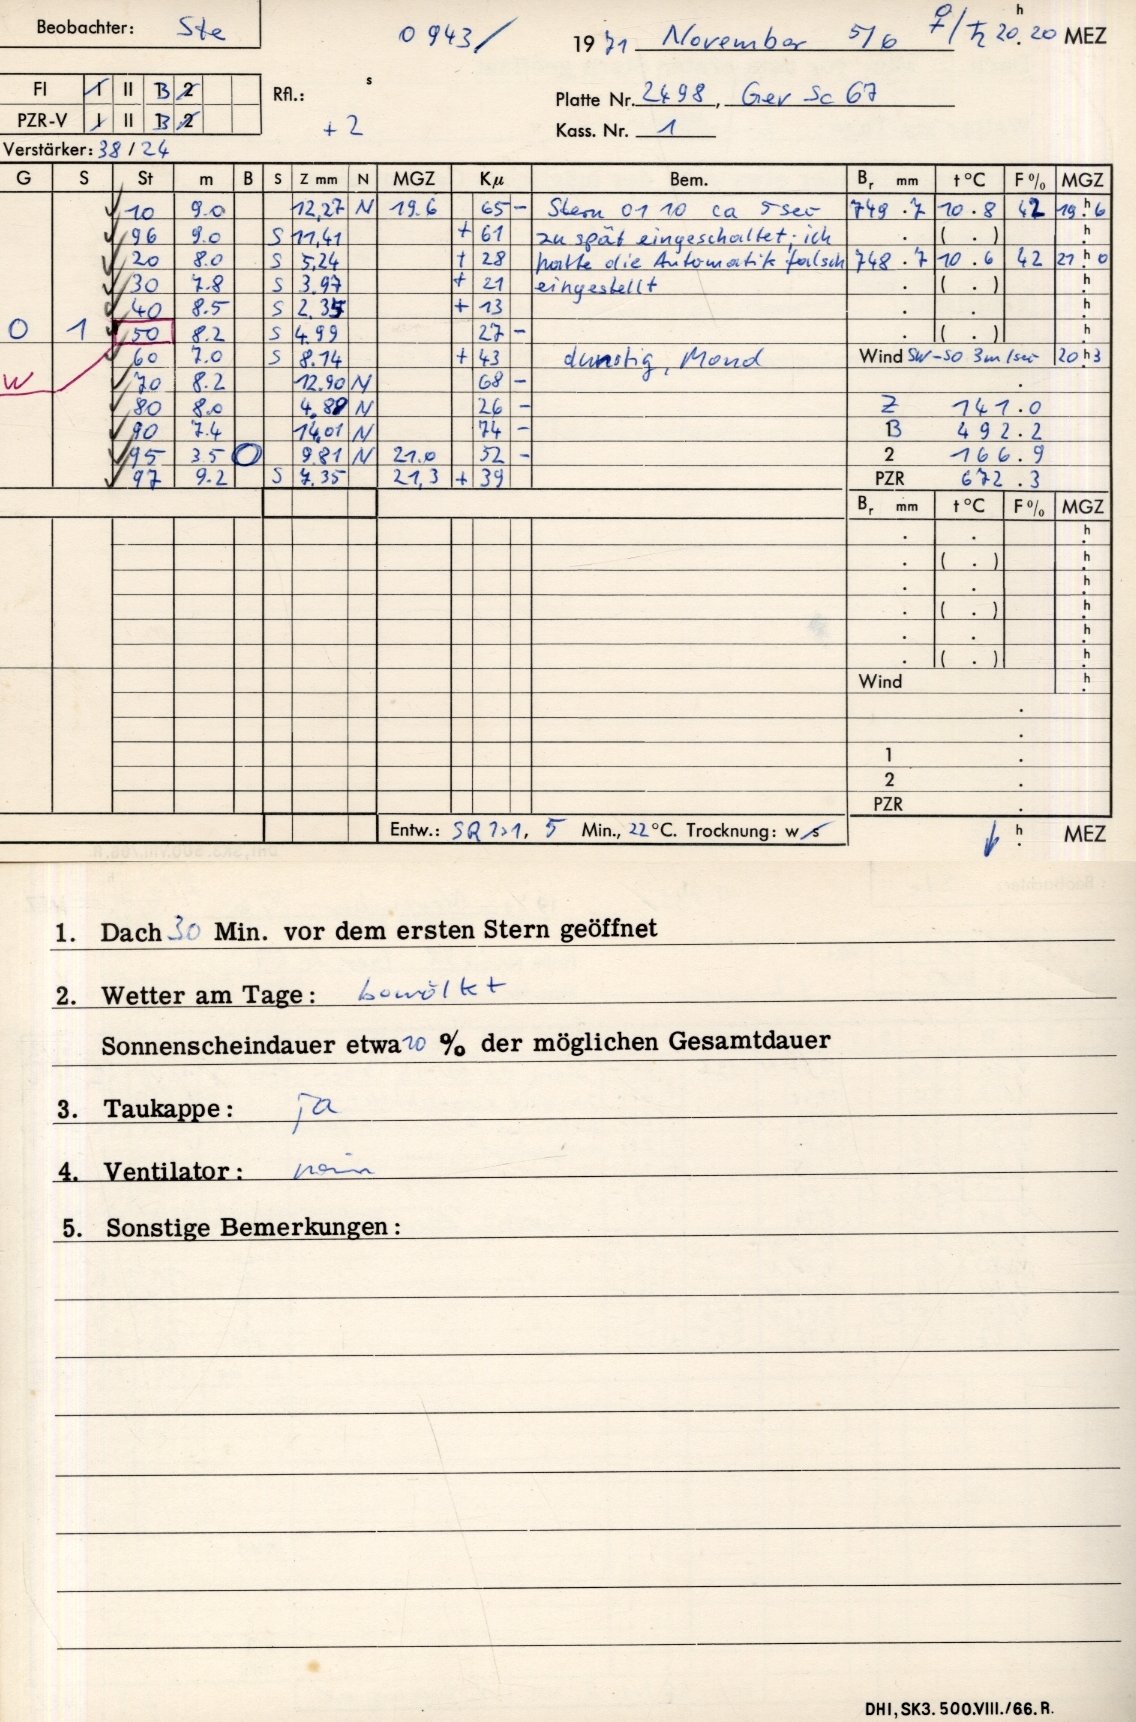 Beobachter: Ste 0943/ 1971 November 5/6 ♀/♄ 20h.20 MEZ
FI I II B 2 Rfl.: s Platte Nr. 2498, Gev Sc 67
PZR-V I II B 2 + 2 Kass. Nr. 1
Verstärker: 38 / 24
G S St m B S Z mm N MGZ Kμ Bem. Br mm t °C F % MGZ
10 9.0 12,27 N 19.6 65 - Stern 01 10 ca 5 sec 749.7 10.8 42 19h.6
96 9.0 S 11,41 + 61 zu spät eingeschaltet; ich . ( . ) h.
20 8.0 S 5,24 + 28 hatte die Automatik falsch 748.7 10.6 42 21h.0
30 7.8 S 3,97 + 21 eingestellt . ( . ) h.
40 8.5 S 2,35 + 13 . . h.
0 1 50 8.2 S 4,99 27 - . ( . ) h.
60 7.0 S 8.14 + 43 dunstig, Mond Wind SW-SO 3m/sec 20h.3
W 70 8.2 12.90 N 68 - .
80 8.0 4,88 N 26 - Z 141.0
90 7.4 14,01 N 74 - B 492.2
95 3.5 O 9.81 N 21.0 52 - 2 166.9
97 9.2 S 7.35 21,3 + 39 PZR 672.3
Br mm t °C F % MGZ
. . h.
. ( . ) h.
. . h.
. ( . ) h.
. . h.
. ( . ) h.
Wind h.
.
.
1 .
2 .
PZR .
Entw.: 5 Min., 22 °C. Trocknung: w/s h. MEZ
1. Dach 30 Min. vor dem ersten Stern geöffnet
2. Wetter am Tage: bewölkt
Sonnenscheindauer etwa 10 % der möglichen Gesamtdauer
3. Taukappe: ja
4. Ventilator: nein
5. Sonstige Bemerkungen:
DHI, SK3. 500.VIII./66. R.